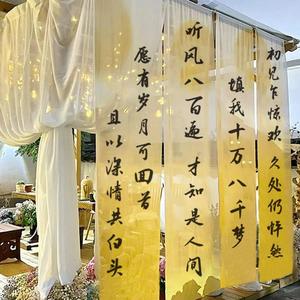 初见乍惊欢 久处仍怦然
填我十万八千梦
听风八百遍 才知是人间
愿有岁月可回首
且以深情共白头